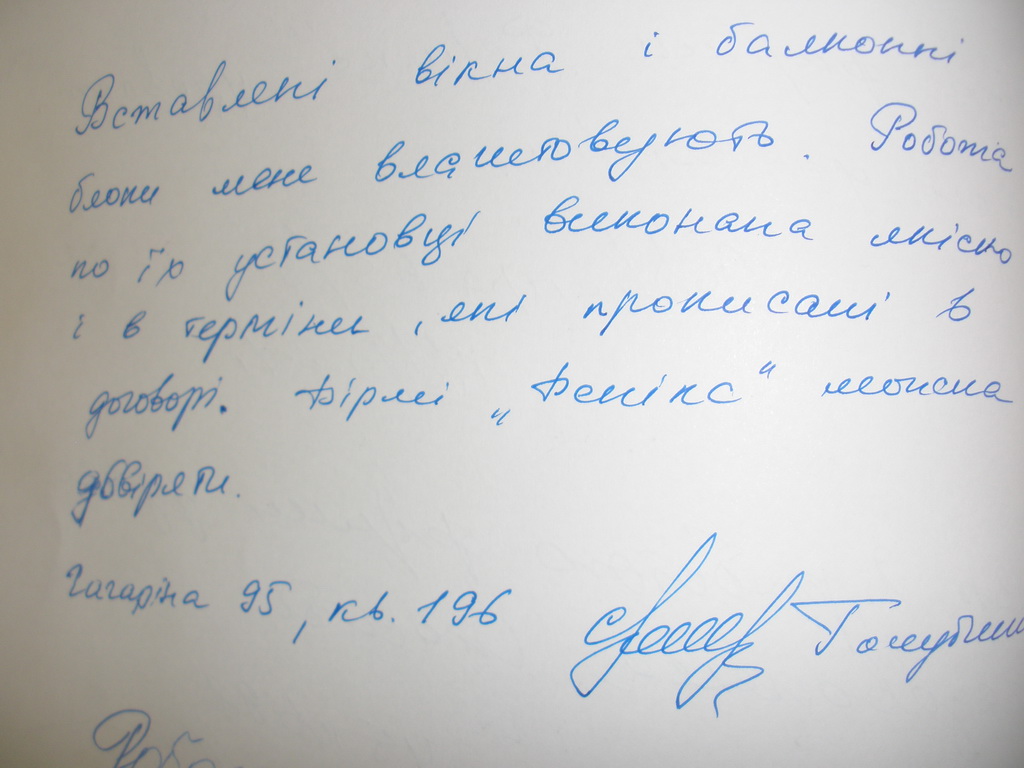 Вставлені вікна і балконні
блоки мене влаштовують. Робота
по їх установці виконана якісно
і в терміни, які прописані в
договорі. Фірмі „Фенікс“ можна
довіряти.
Гагаріна 95, кв. 196